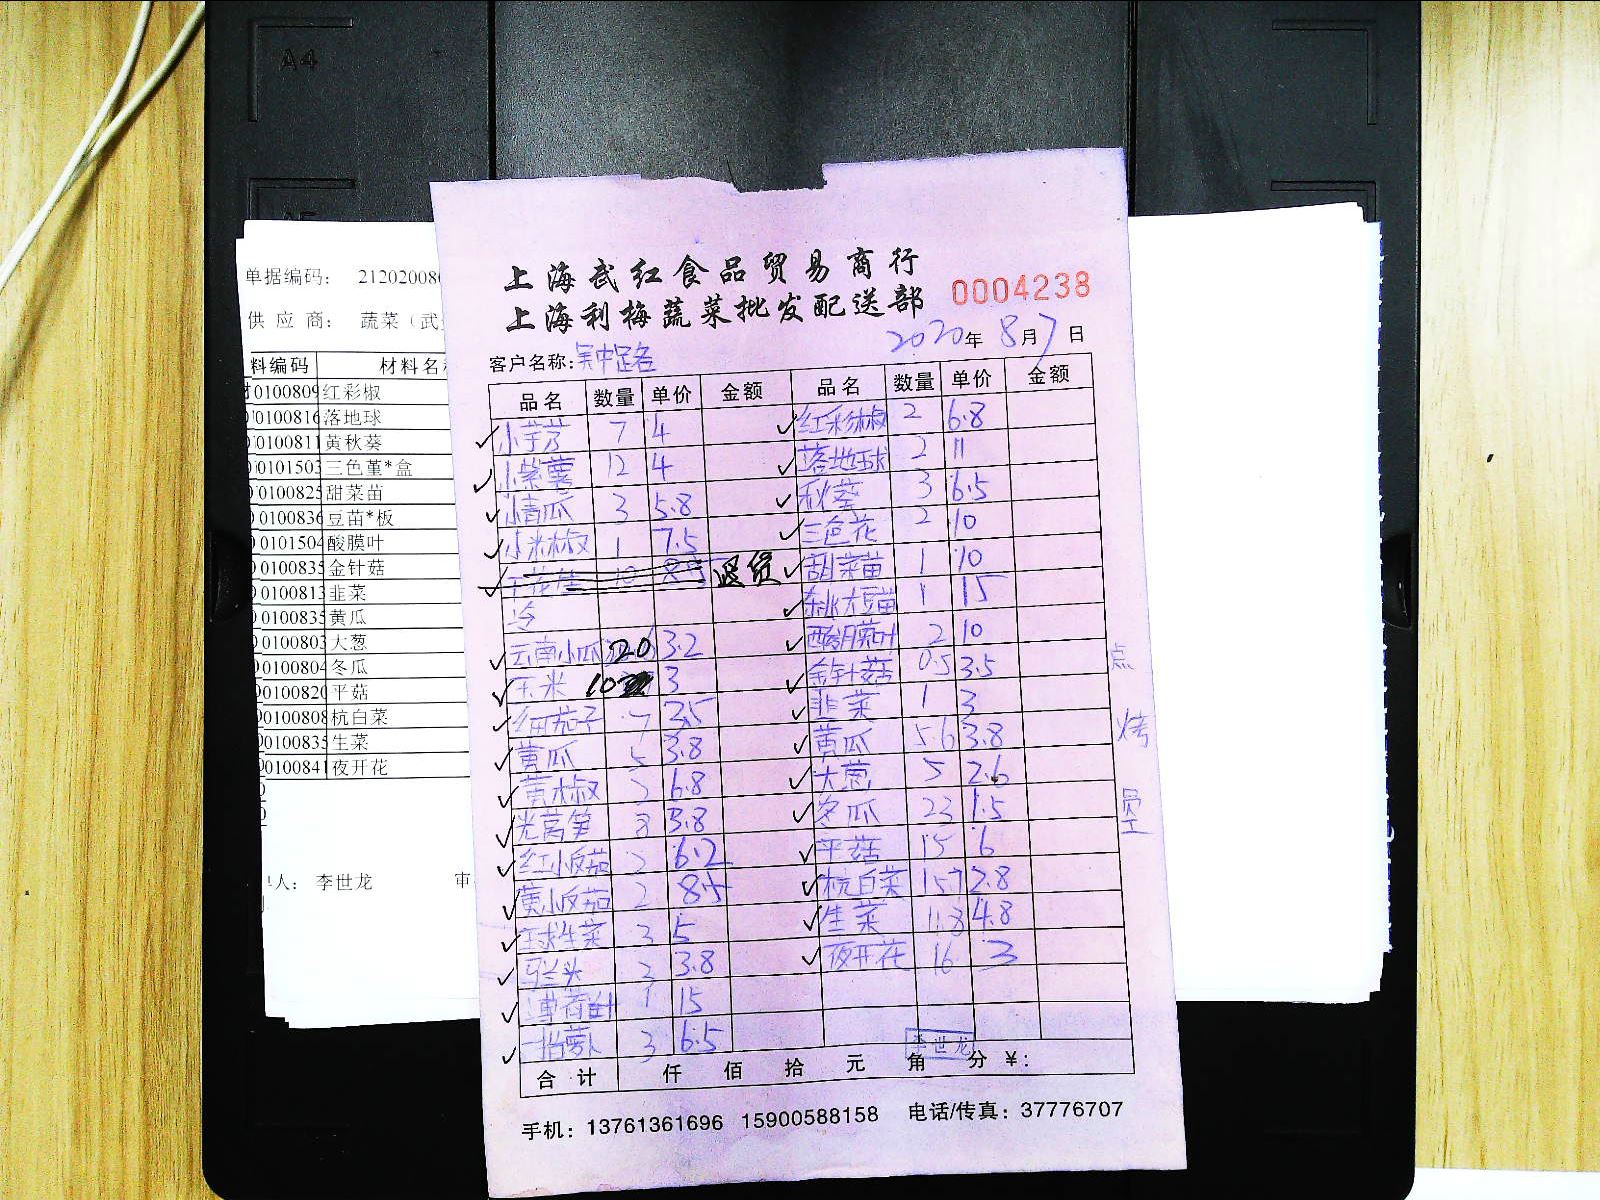 A4
单据编码： 21202008
供 应 商： 蔬菜（武
料编码 材料名称
0100809 红彩椒
0100816 落地球
0100811 黄秋葵
0101503 三色堇*盒
0100825 甜菜苗
0100836 豆苗*板
0101504 酸膜叶
0100835 金针菇
0100813 韭菜
0100835 黄瓜
0100803 大葱
0100804 冬瓜
0100820 平菇
0100808 杭白菜
0100835 生菜
0100841 夜开花
人： 李世龙 审
上海武红食品贸易商行
上海利梅蔬菜批发配送部
0004238
2020年 8月7日
客户名称：吴中路
品名 数量 单价 金额 品名 数量 单价 金额
小芋艿 7 4 红彩椒 2 6.8
小紫薯 12 4 落地球 2 11
小青瓜 3 5.8 秋葵 3 6.5
小米椒 1 7.5 三色花 2 10
10 8.5 退货 甜菜苗 1 10
冷 大豆苗 1 15
云南小瓜 20 3.2 酸膜菜叶 2 10
玉米 10 3 金针菇 0.5 3.5
细茄子 7 3.5 韭菜 1 3
黄瓜 5 3.8 黄瓜 5.6 3.8
黄椒 2 6.8 大葱 5 2.6
光莴笋 8 3.8 冬瓜 23 1.5
红小番茄 2 6.2 平菇 15 6
黄小番茄 2 8.5 杭白菜 157 2.8
球生菜 3 5 生菜 11.8 4.8
马兰头 2 3.8 夜开花 16 3
薄荷叶 1 15
萝卜 3 6.5
点
烤
员工
李世龙
合计 仟 佰 拾 元 角 分 ￥：
手机：13761361696 15900588158 电话/传真：37776707